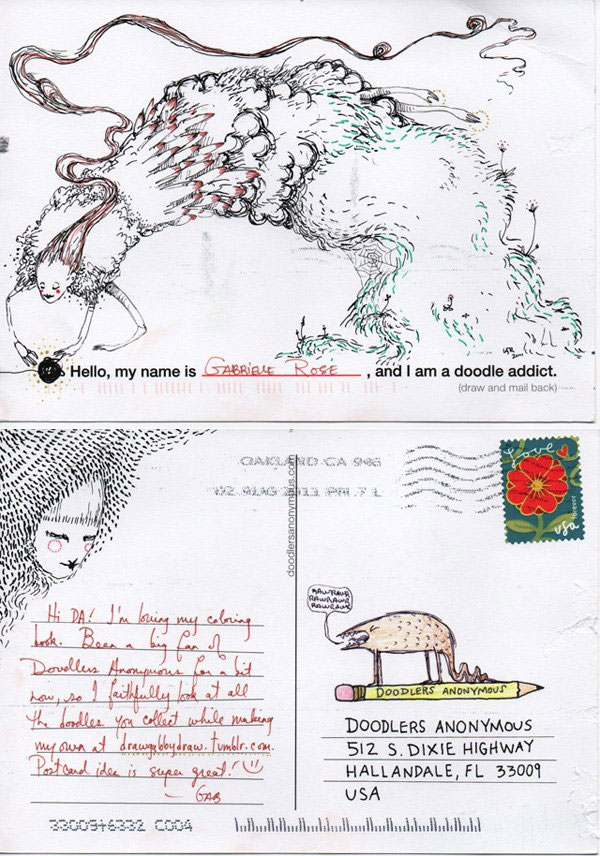 Hello, my name is GABRIELLE ROSE, and I am a doodle addict.
(draw and mail back)
OAKLAND CA 946
02 AUG 2011 PM 7 L
Love
USA
forever
doodlersanonymous.com
Hi DA! I'm loving my coloring
book. Been a big fan of
Doodlers Anonymous for a bit
now, so I faithfully look at all
the doodles you collect while making
my own at drawgabbydraw.tumblr.com.
Postcard idea is super great!
- GAB
RAWRAWR
RAWRAWR
RAWRAWR
DOODLERS ANONYMOUS
DOODLERS ANONYMOUS
512 S. DIXIE HIGHWAY
HALLANDALE, FL 33009
USA
33009+6332 C004